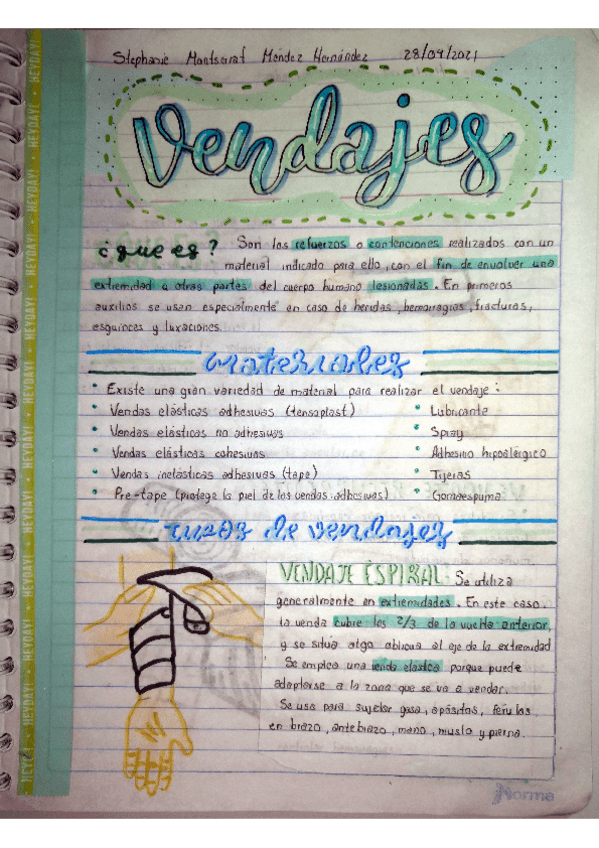 Stephanie Montserrat Méndez Hernández 28/09/2021
Vendajes
¿que es? Son los refuerzos o contenciones realizados con un
material indicado para ello, con el fin de envolver una
extremidad u otras partes del cuerpo humano lesionadas. En primeros
auxilios se usan especialmente en caso de heridas, hemorragias, fracturas,
esguinces y luxaciones
materiales
• Existe una gran variedad de material para realizar el vendaje:
• Vendas elásticas adhesivas (tensoplast) • Lubricante
• Vendas elásticas no adhesivas • Spray
• Vendas elásticas cohesivas • Adhesivo hipoalérgico
• Vendas inelásticas adhesivas (tape) • Tijeras
• Pre-tape (protege la piel de las vendas adhesivas) • Gomaespuma
tipos de vendajes
VENDAJE ESPIRAL: Se utiliza
generalmente en extremidades. En este caso,
la venda cubre los 2/3 de la vuelta anterior,
y se situa algo oblicua al eje de la extremidad
Se emplea una venda elastica porque puede
adaptarse a la zona que se va a vendar.
Se usa para sujetar gasa, apósitos, férulas
en brazo, antebrazo, mano, muslo y pierna.
HEYDAY! HEYDAY! HEYDAY! HEYDAY! HEYDAY! HEYDAY! HEYDAY! HEYDAY! HEYDAY! HEYDAY! HEYDAY!
Norma